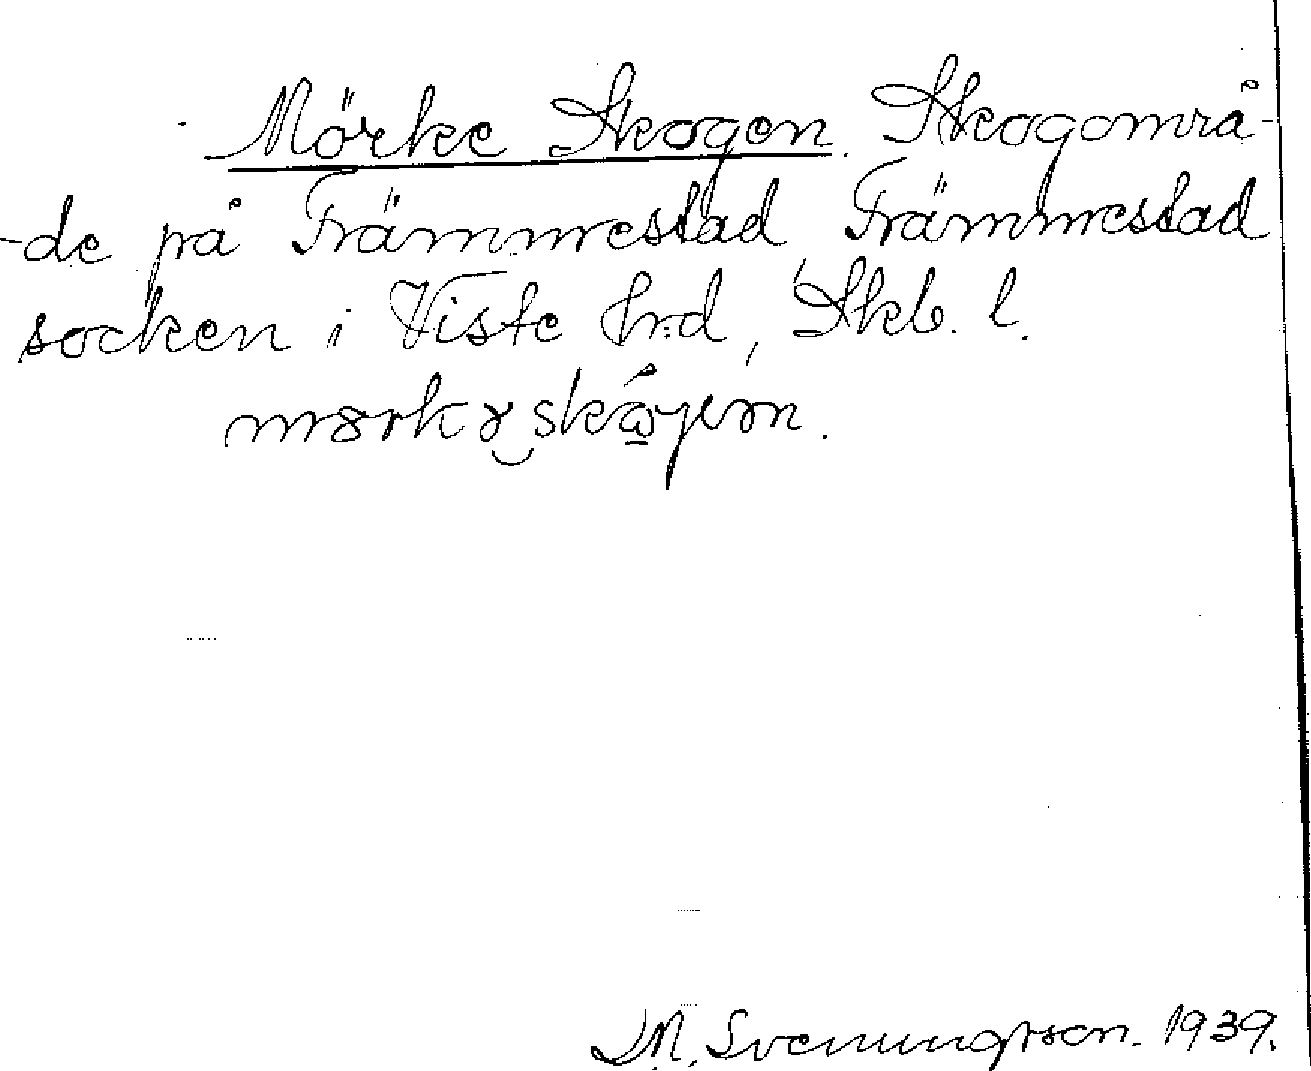 Mörke Skogen. Skogområ-
-de på Främmestad Främmestad
socken i Viste hrd, Skb. l.
M. Svenungsson. 1939.